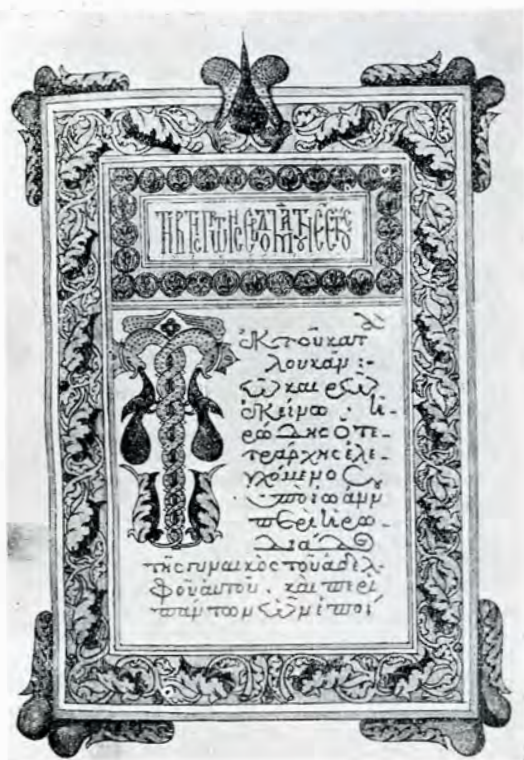 ἐκ τοῦ κατ
λουκᾶν :-
Τῶ καιρῶ
ἐκείνω · ἡ-
ρώδης ὁ τε-
τράρχης ἐλε-
γχόμενος
ὑπὸ ἰωάνν
περὶ ἡρω-
διάδος
τῆς γυναικὸς τοῦ ἀδελ-
φοῦ αὐτοῦ . καὶ περὶ
πάντων ὧν ἐποί